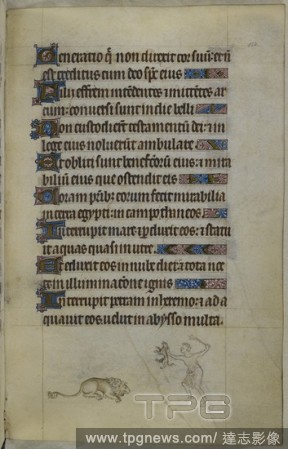 Generatio q̄ non direxit cor suū: et nō
est creditus cum deo sp̄c eius
Filii effrem intēdentes ⁊ mittētes ar
cum: conuersi sunt in die belli
Non custodierūt testamentū dei: ⁊ in
lege eius noluerūt ambulare
Et obliti sunt benefactoꝝ eius: ⁊ mira
biliū eius que ostendit eis
Coram patrib: eorum fecit mirabilia
in terra egypti: in campo thaneos
Interrupit mare ⁊ p̄duxit eos: ⁊ statu
it aquas quasi in utre
Et eduxit eos in nube diei: ⁊ tota nec
te in illuminatione ignis
Interrupit petram in heremo: ⁊ ada
quauit eos uelut in abysso multa.
TPG
www.tpgnews.com/ 達志影像